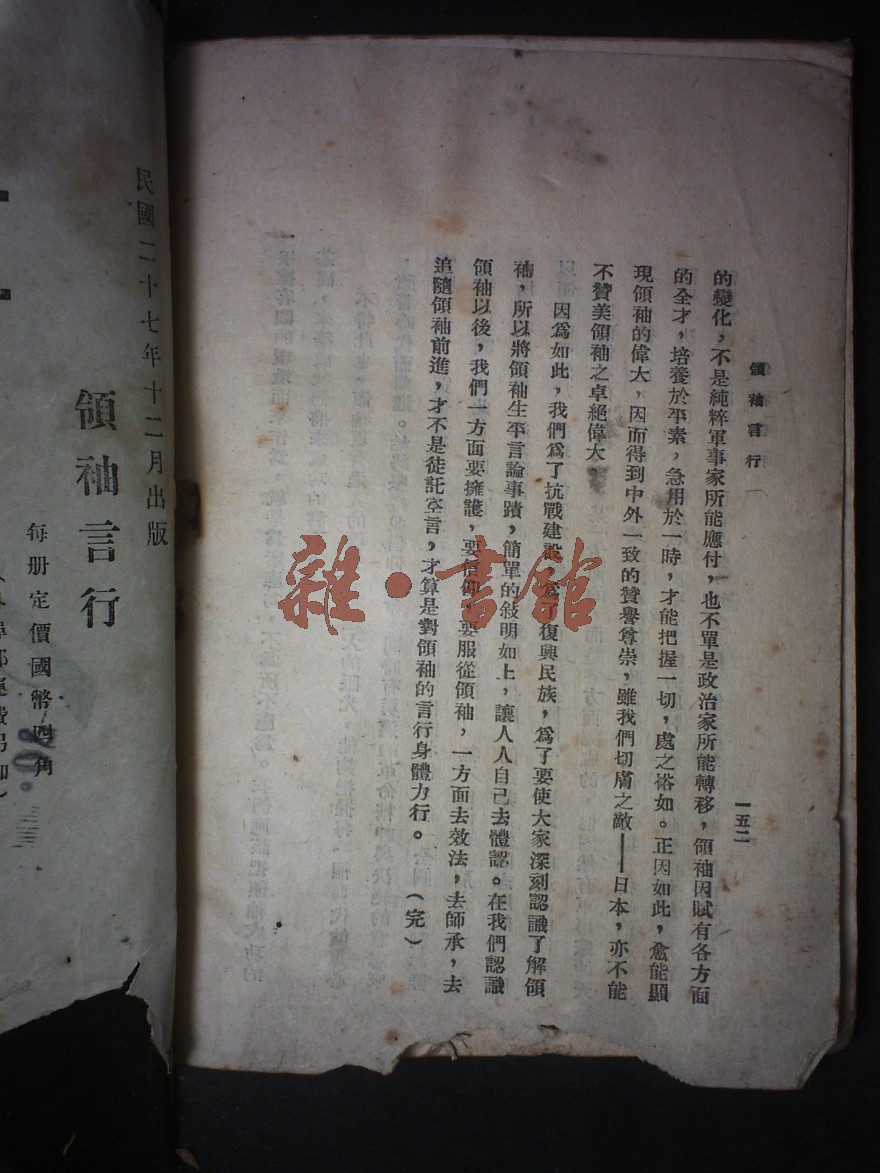 領袖言行
一五二
的變化，不是純粹軍事家所能應付，也不單是政治家所能轉移，領袖因賦有各方面
的全才，培養於平素，急用於一時，才能把握一切，處之裕如。正因如此，愈能顯
現領袖的偉大，因而得到中外一致的贊譽尊崇，雖我們切膚之敵——日本，亦不能
不贊美領袖之卓絕偉大。
因爲如此，我們爲了抗戰建設，爲了復興民族，爲了要使大家深刻認識了解領
袖，所以將領袖生平言論事蹟，簡單的敍明如上，讓人人自己去體認。在我們認識
領袖以後，我們一方面要擁護，要信仰，要服從領袖，一方面去效法，去師承，去
追隨領袖前進，才不是徒託空言，才算是對領袖的言行身體力行。（完）
民國二十七年十二月出版
領袖言行
每册定價國幣四角
雜·書館